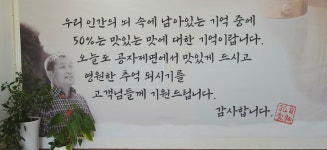 우리 인간의 뇌 속에 남아있는 기억 중에
50%는 맛있는 맛에 대한 기억이랍니다.
오늘도 공자제면에서 맛있게 드시고
영원한 추억 되시기를
고객님들께 기원드립니다.
감사합니다.